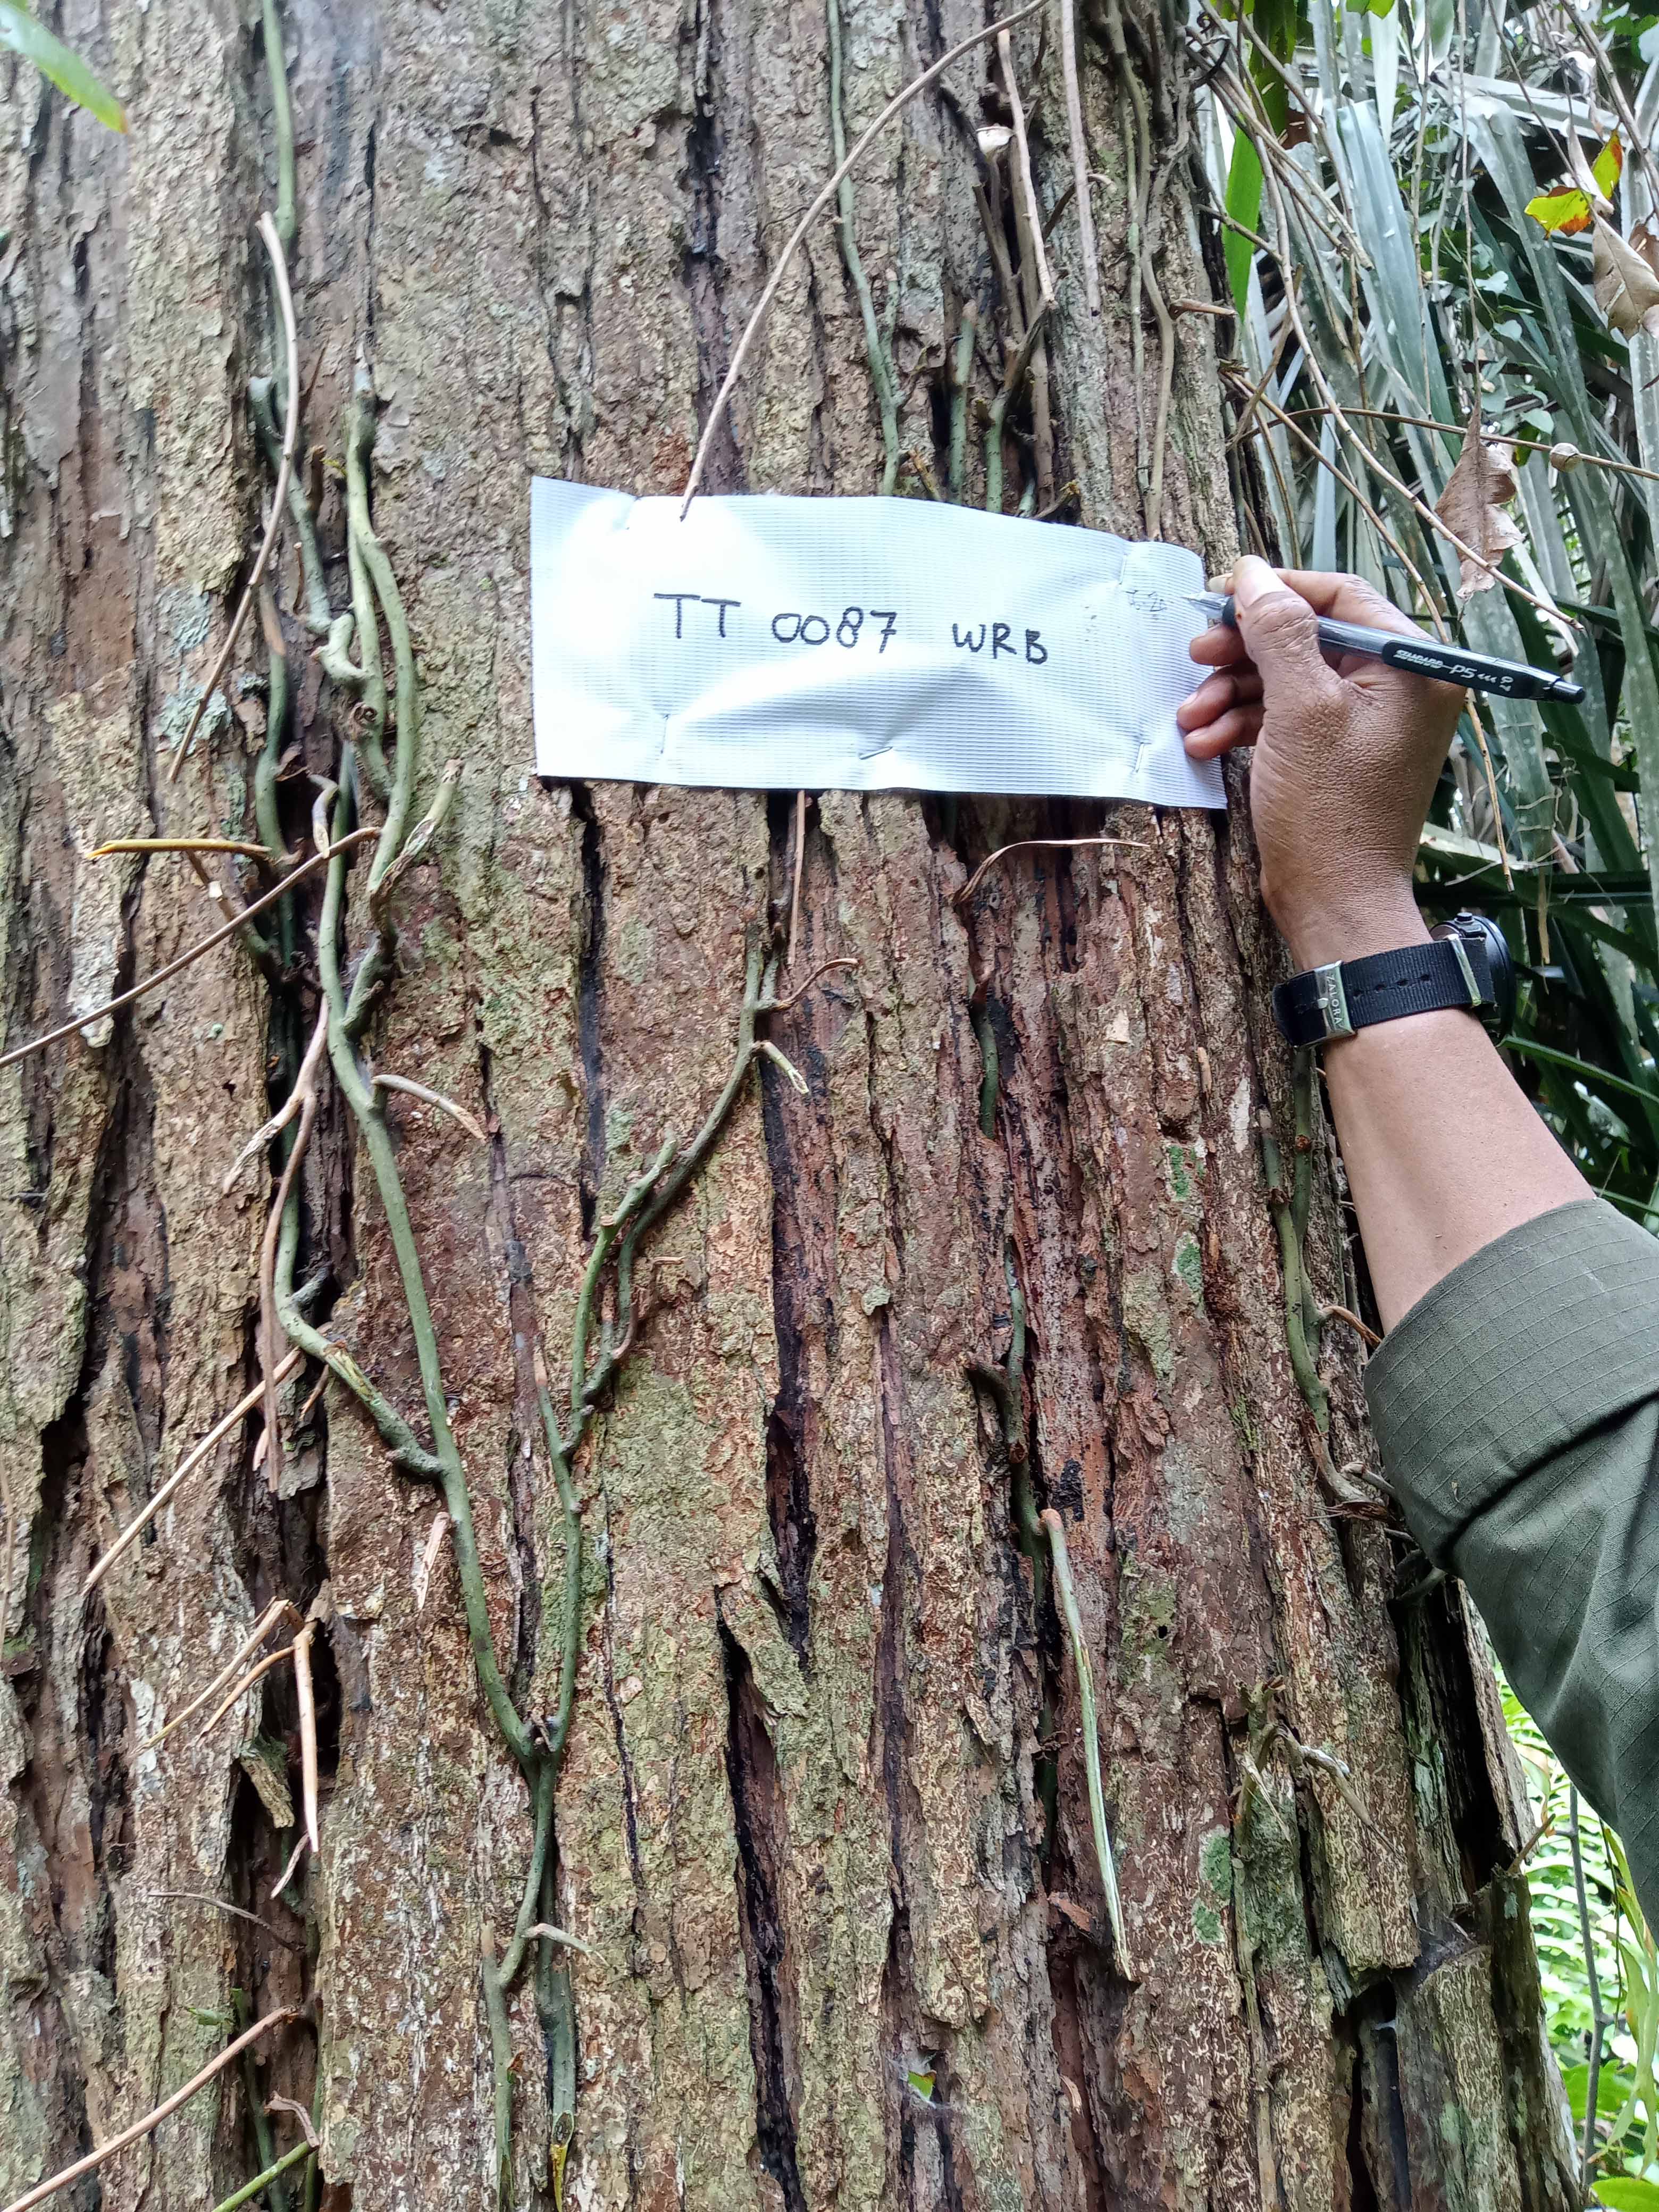 TT 0087 WRB
STANDARD P5mm 0.7
ALORA